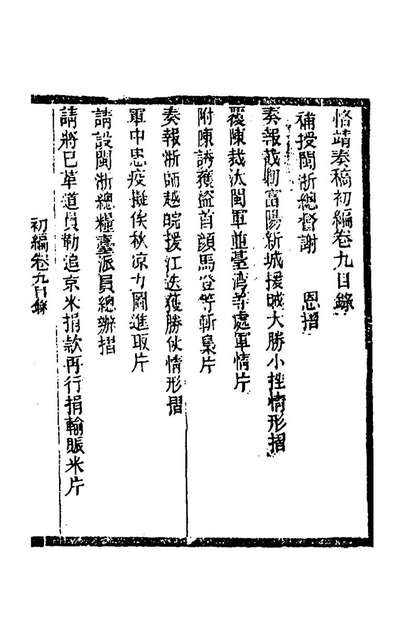 恪靖奏稿初編卷九目錄
補授閩浙總督謝　恩摺
奏報截勦富陽新城援賊大勝小挫情形摺
覆陳裁汰閩軍並臺灣等處軍情片
附陳誘獲盜首顔馬登等斬梟片
奏報浙師越皖援江迭獲勝仗情形摺
軍中患疫擬俟秋凉力圖進取片
請設閩浙總糧臺派員總辦摺
請將已革道員勒追京米捐款再行捐輸賑米片
初編卷九目錄